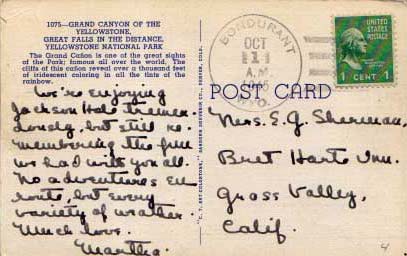 1075—GRAND CANYON OF THE
YELLOWSTONE,
GREAT FALLS IN THE DISTANCE,
YELLOWSTONE NATIONAL PARK
The Grand Cañon is one of the great sights
of the Park; famous all over the world. The
cliffs of this cañon reveal over a thousand feet
of iridescent coloring in all the tints of the
rainbow.
We're enjoying
Jackson Hole tremen-
dously, but still re-
membering the fun
we had with you all.
No adventures en
route, but every
variety of weather.
Much love.
Martha.
BONDURANT
OCT
1
A.M
WYO.
UNITED
STATES
POSTAGE
1 CENT 1
POST CARD
Mrs. E. G. Sherman,
Bret Harte Inn.
Grass Valley,
Calif.
4